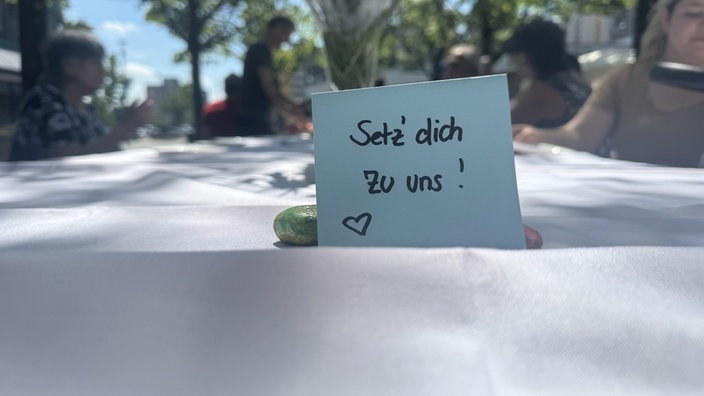 Setz' dich
zu uns!